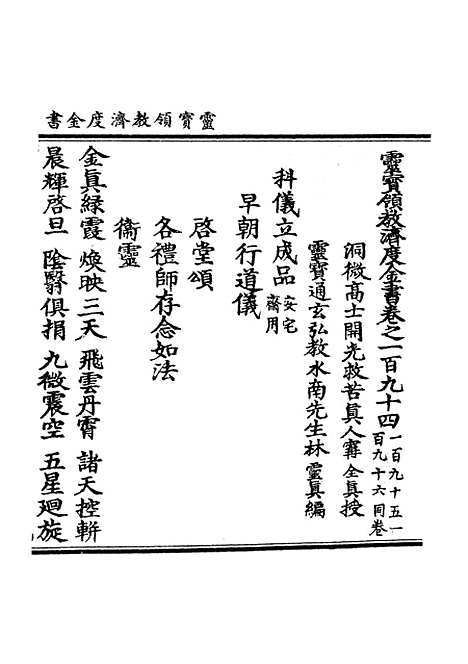 書金度濟教領寶靈
靈寶領教濟度金書卷之一百九十四一百九十五一百九十六同卷
洞微高士開光救苦眞人甯全眞授
靈寶通玄弘教水南先生林靈眞編
科儀立成品安宅齋用
早朝行道儀
啓堂頌
各禮師存念如法
衞靈
金眞緑霞 煥映三天 飛雲丹霄 諸天控軿
晨輝啓旦 陰翳俱捐 九微震空 五星廻旋